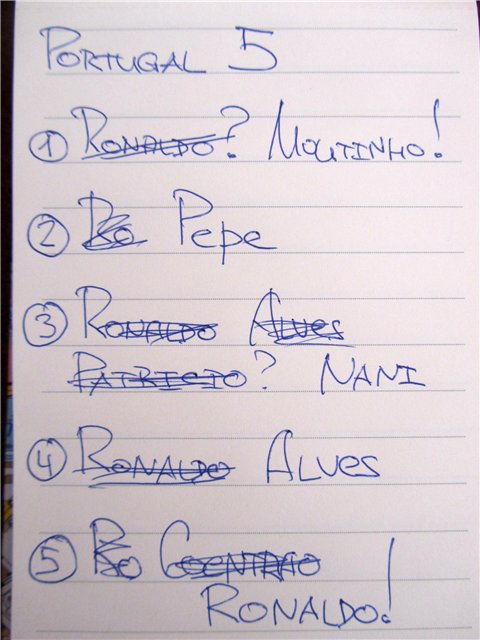 PORTUGAL 5
① RONALDO? MOUTINHO!
② RO PEPE
③ RONALDO ALVES
PATRICIO? NANI
④ RONALDO ALVES
⑤ RO COENTRAO
RONALDO!